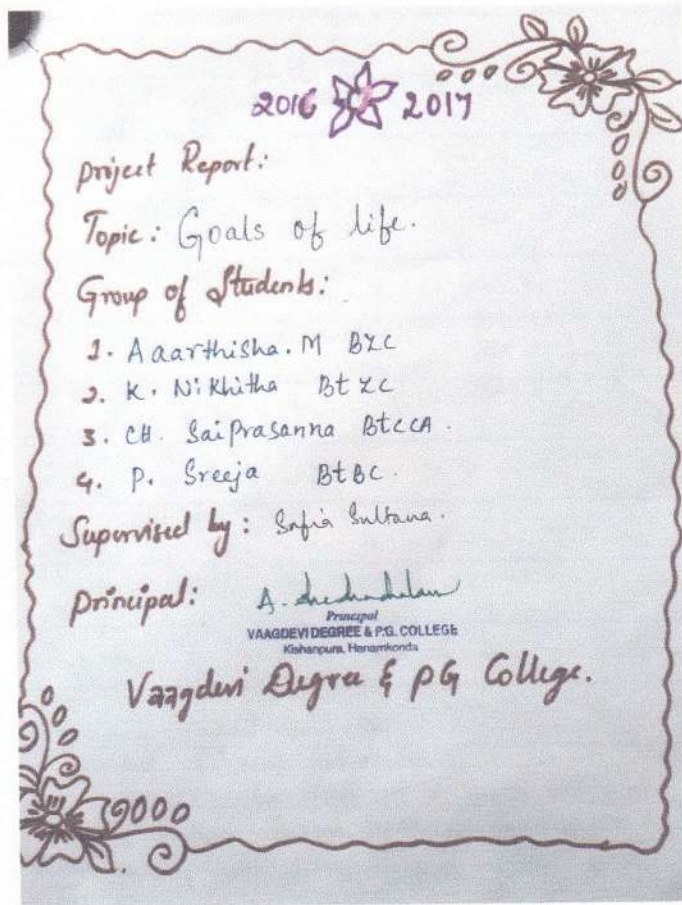 2016 2017
Project Report:
Topic: Goals of life.
Group of Students:
1. Aaarthisha. M BZC
2. K. Nikhitha BtZC
3. CH. SaiPrasanna BtCCA.
4. P. Sreeja BtBC.
Supervised by: Safia Sultana.
Principal: A.
Principal
VAAGDEVI DEGREE & P.G. COLLEGE
Kishanpura, Hanamkonda
Vaagdevi Degree & PG College.